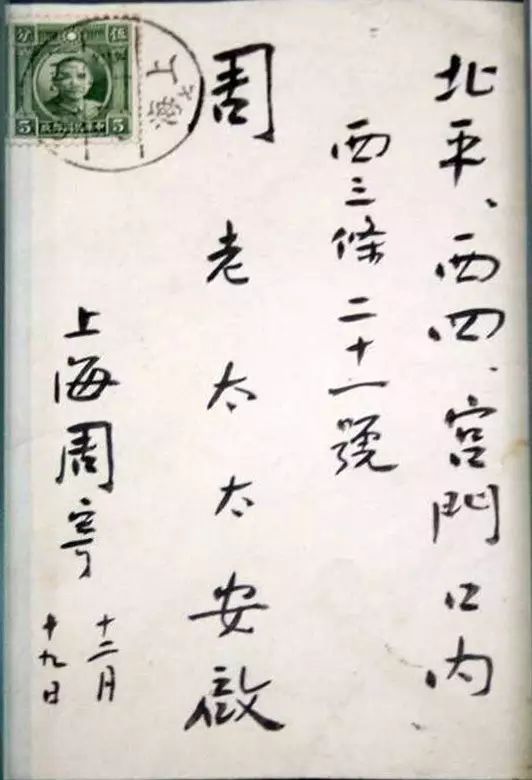 北平、西四、宮門口内
西三條二十一號
周老太太安啟
上海周寄
十二月
十九日
分 伍
5 5
上海